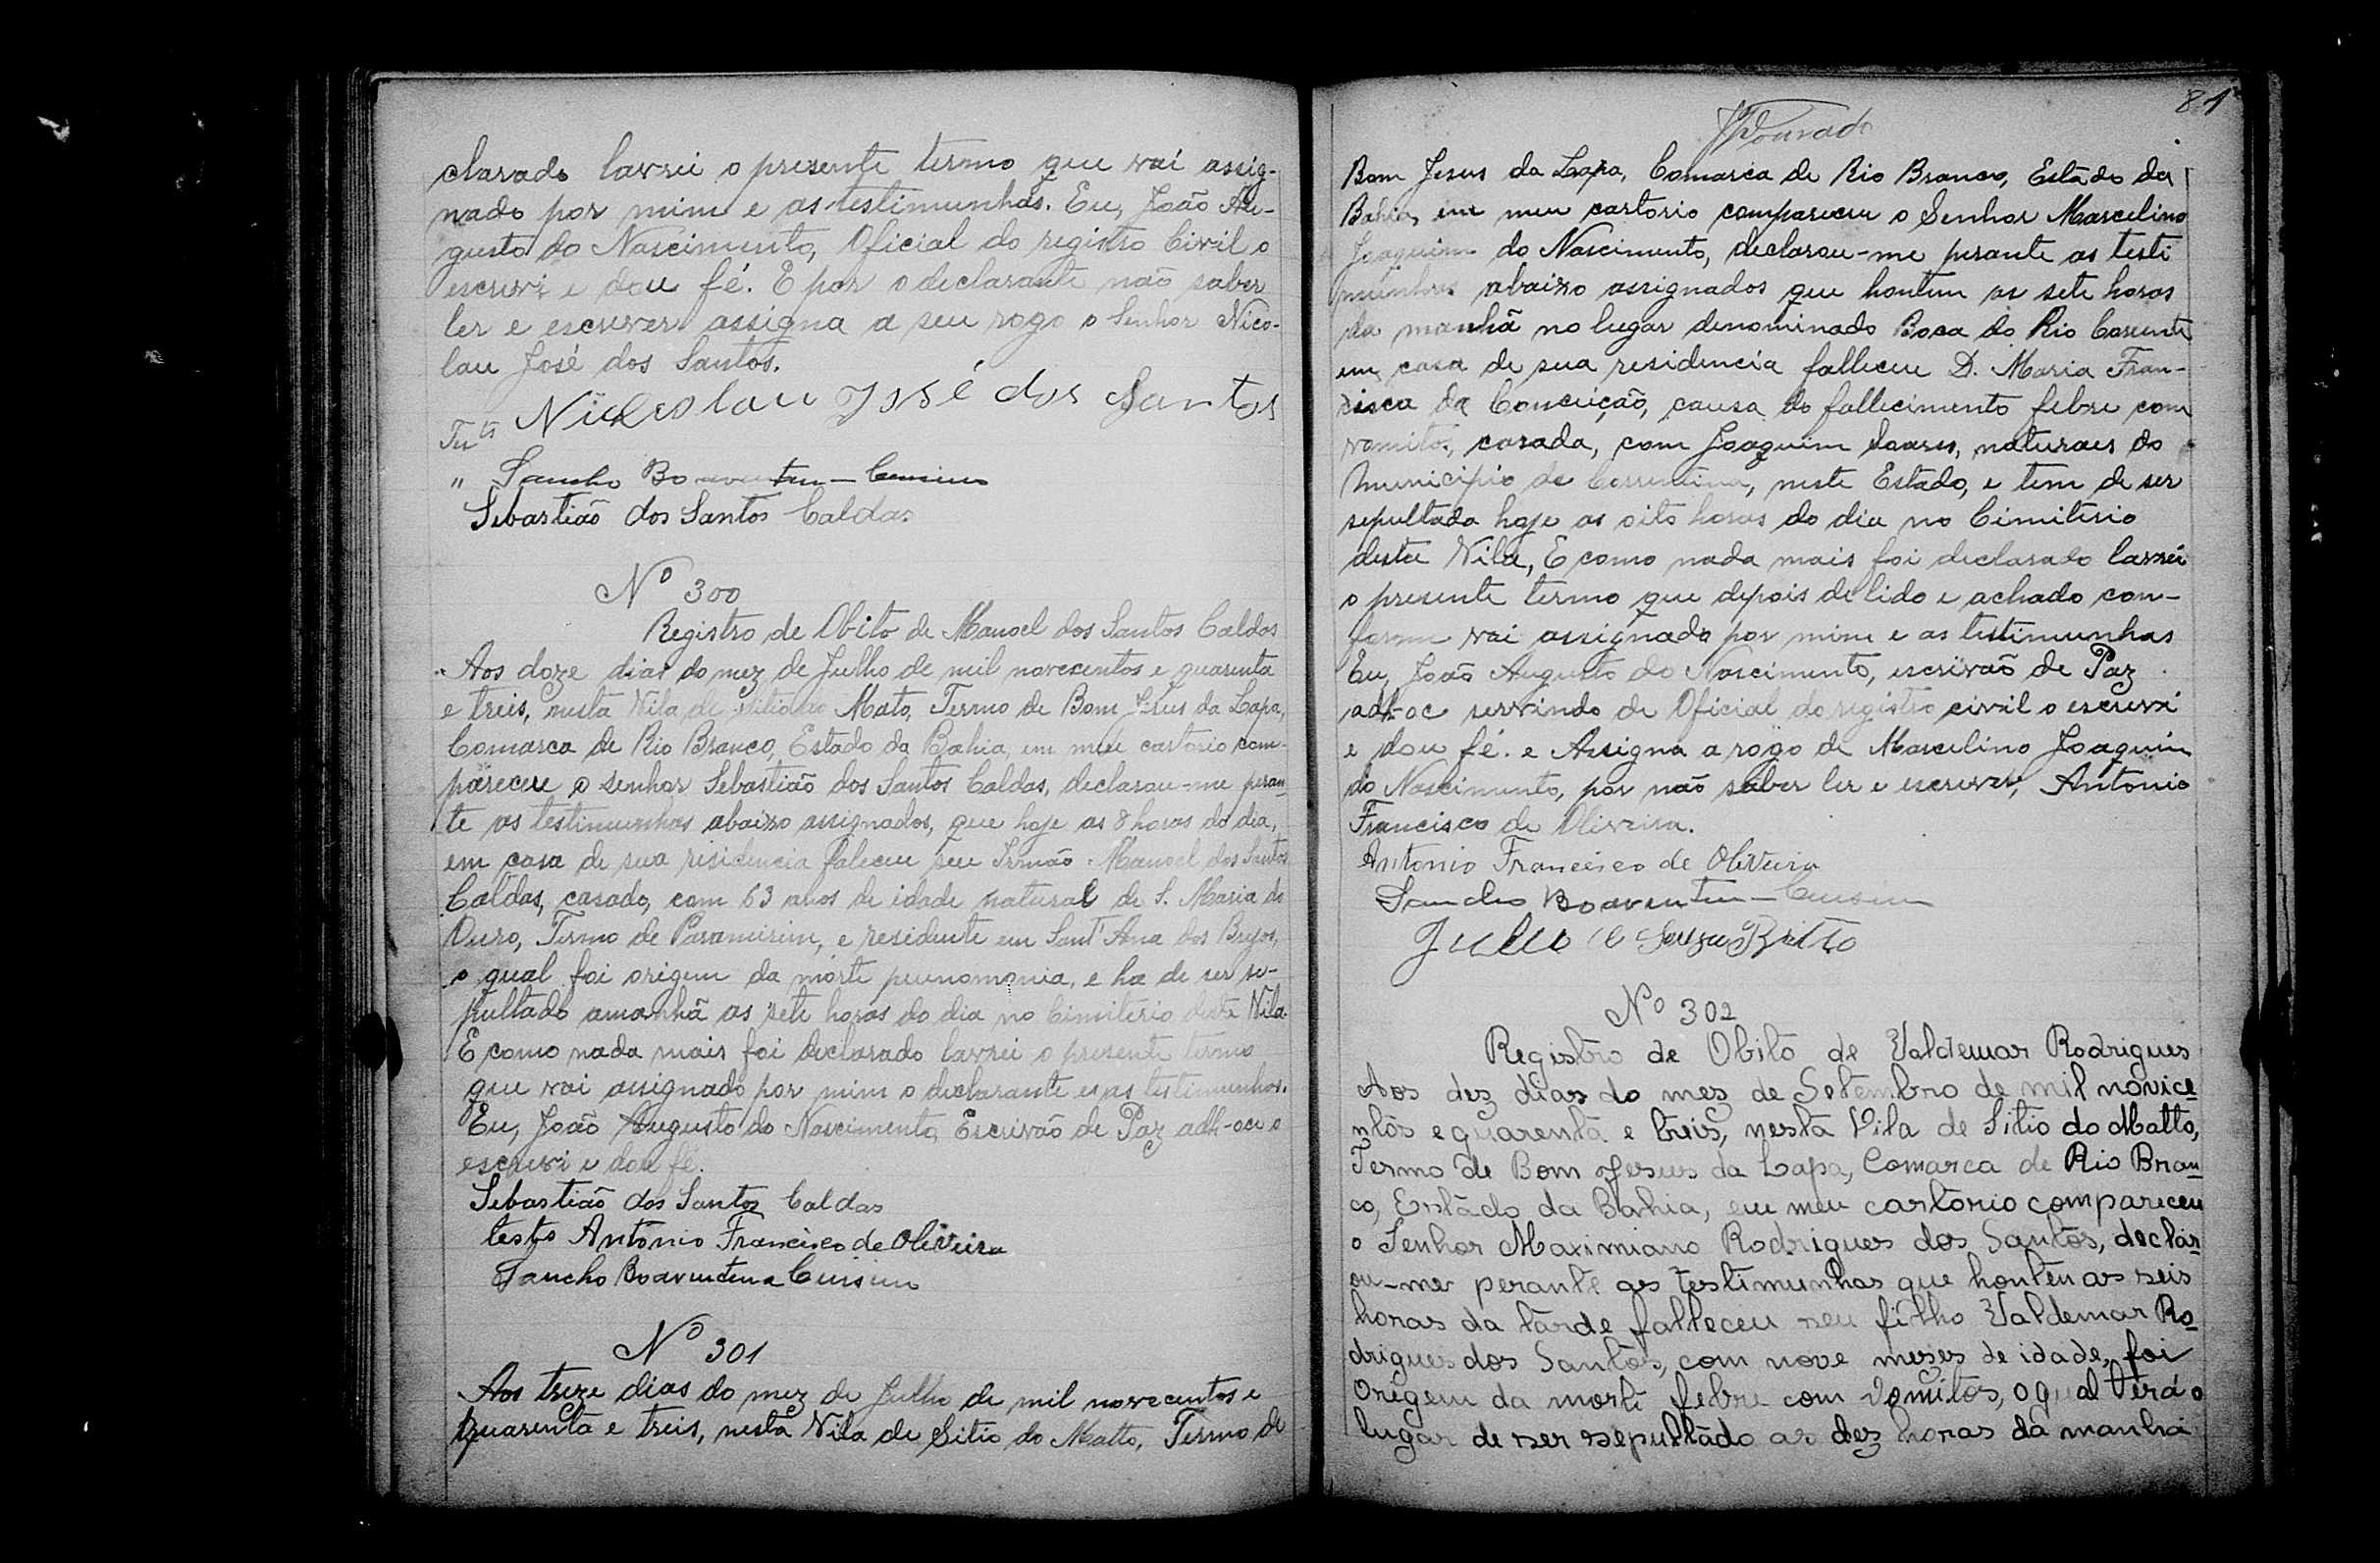 clarado lavrei o presente termo que vai assig-
nado por mim e as testimunhas. Eu, João Au-
gusto do Nascimento, Oficial do registro Civil o
escrevi e dou fé. E por o declarante não saber
ler e escrever assigna a seu rogo o Senhor Nico-
lau José dos Santos.
Nicolau José dos Santos
" Sancho Boaventura
Sebastião dos Santos Caldas
Nº 300
Registro de Obito de Manoel dos Santos Caldas
Aos doze dias do mez de Julho de mil novecentos e quarenta
e treis, nesta Vila de Sitio do Mato, Termo de Bom Jesus da Lapa,
Comarca de Rio Branco, Estado da Bahia, em meu cartorio com-
pareceu o senhor Sebastião dos Santos Caldas, declarou-me peran-
te as testimunhas abaixo assignados, que hoje as 8 horas do dia,
em casa de sua residencia faleceu seu Irmão Manoel dos Santos
Caldas, casado, com 63 anos de idade natural de S. Maria do
Ouro, Termo de Paramirim, e residente em Sant'Ana dos Brejos,
o qual foi origem da morte peunomonia, e ha de ser se-
pultado amanhã as sete horas do dia no Cimiterio desta Vila.
E como nada mais foi declarado lavrei o presente termo
que vai assignado por mim o declarante e as testimunhos.
Eu, João Augusto do Nascimento, Escrivão de Paz adh-oc o
escrevi e dou fé.
Sebastião dos Santos Caldas
testo Antonio Francisco de Oliveira
Sancho Boaventura
Nº 301
Aos treze dias do mez de Julho de mil novecentos e
quarenta e treis, nesta Vila de Sitio do Matto, Termo de
81
Dourado
Bom Jesus da Lapa, Comarca de Rio Branco, Estado da
Bahia, em meu cartorio compareceu o Senhor Marcelino
Joaquim do Nascimento, declarou-me perante as testi
munhas abaixo assignados que hontem as sete horas
da manhã no lugar denominado Boca do Rio Corrente
em casa de sua residencia falleceu D. Maria Fran-
cisca da Conceição, causa do fallecimento febre com
vomitos, casada, com Joaquim Soares, naturaes do
Municipio de Correntina, neste Estado, e tem de ser
sepultada hoje as oito horas do dia no Cimiterio
desta Vila, E como nada mais foi declarado lavrei
o presente termo que depois de lido e achado con-
form vai assignado por mim e as testimunhas
Eu, João Augusto do Nascimento, escrivão de Paz
adh-oc servindo de Oficial do registro civil o escrevi
e dou fé. e Assigna a rogo de Marcelino Joaquim
do Nascimento, por não saber ler e escrever, Antonio
Francisco de Oliveira.
Antonio Francisco de Oliveira
Sancho Boaventura
Julio de Souza Britto
Nº 302
Registro de Obito de Valdemar Rodrigues
Aos dez dias do mez de Setembro de mil novice-
ntos e quarenta e treis, nesta Vila de Sitio do Matto,
Termo de Bom Jesus da Lapa, Comarca de Rio Bran-
co, Estado da Bahia, em meu cartorio compareceu
o Senhor Maximiano Rodrigues dos Santos, declar-
ou-me perante as testimunhas que honten as seis
horas da tarde falleceu seu filho Valdemar Ro-
drigues dos Santos, com nove meses de idade, foi
Origem da morte febre com vomitos, o qual terá o
lugar de ser sepultado as dez horas da manhã